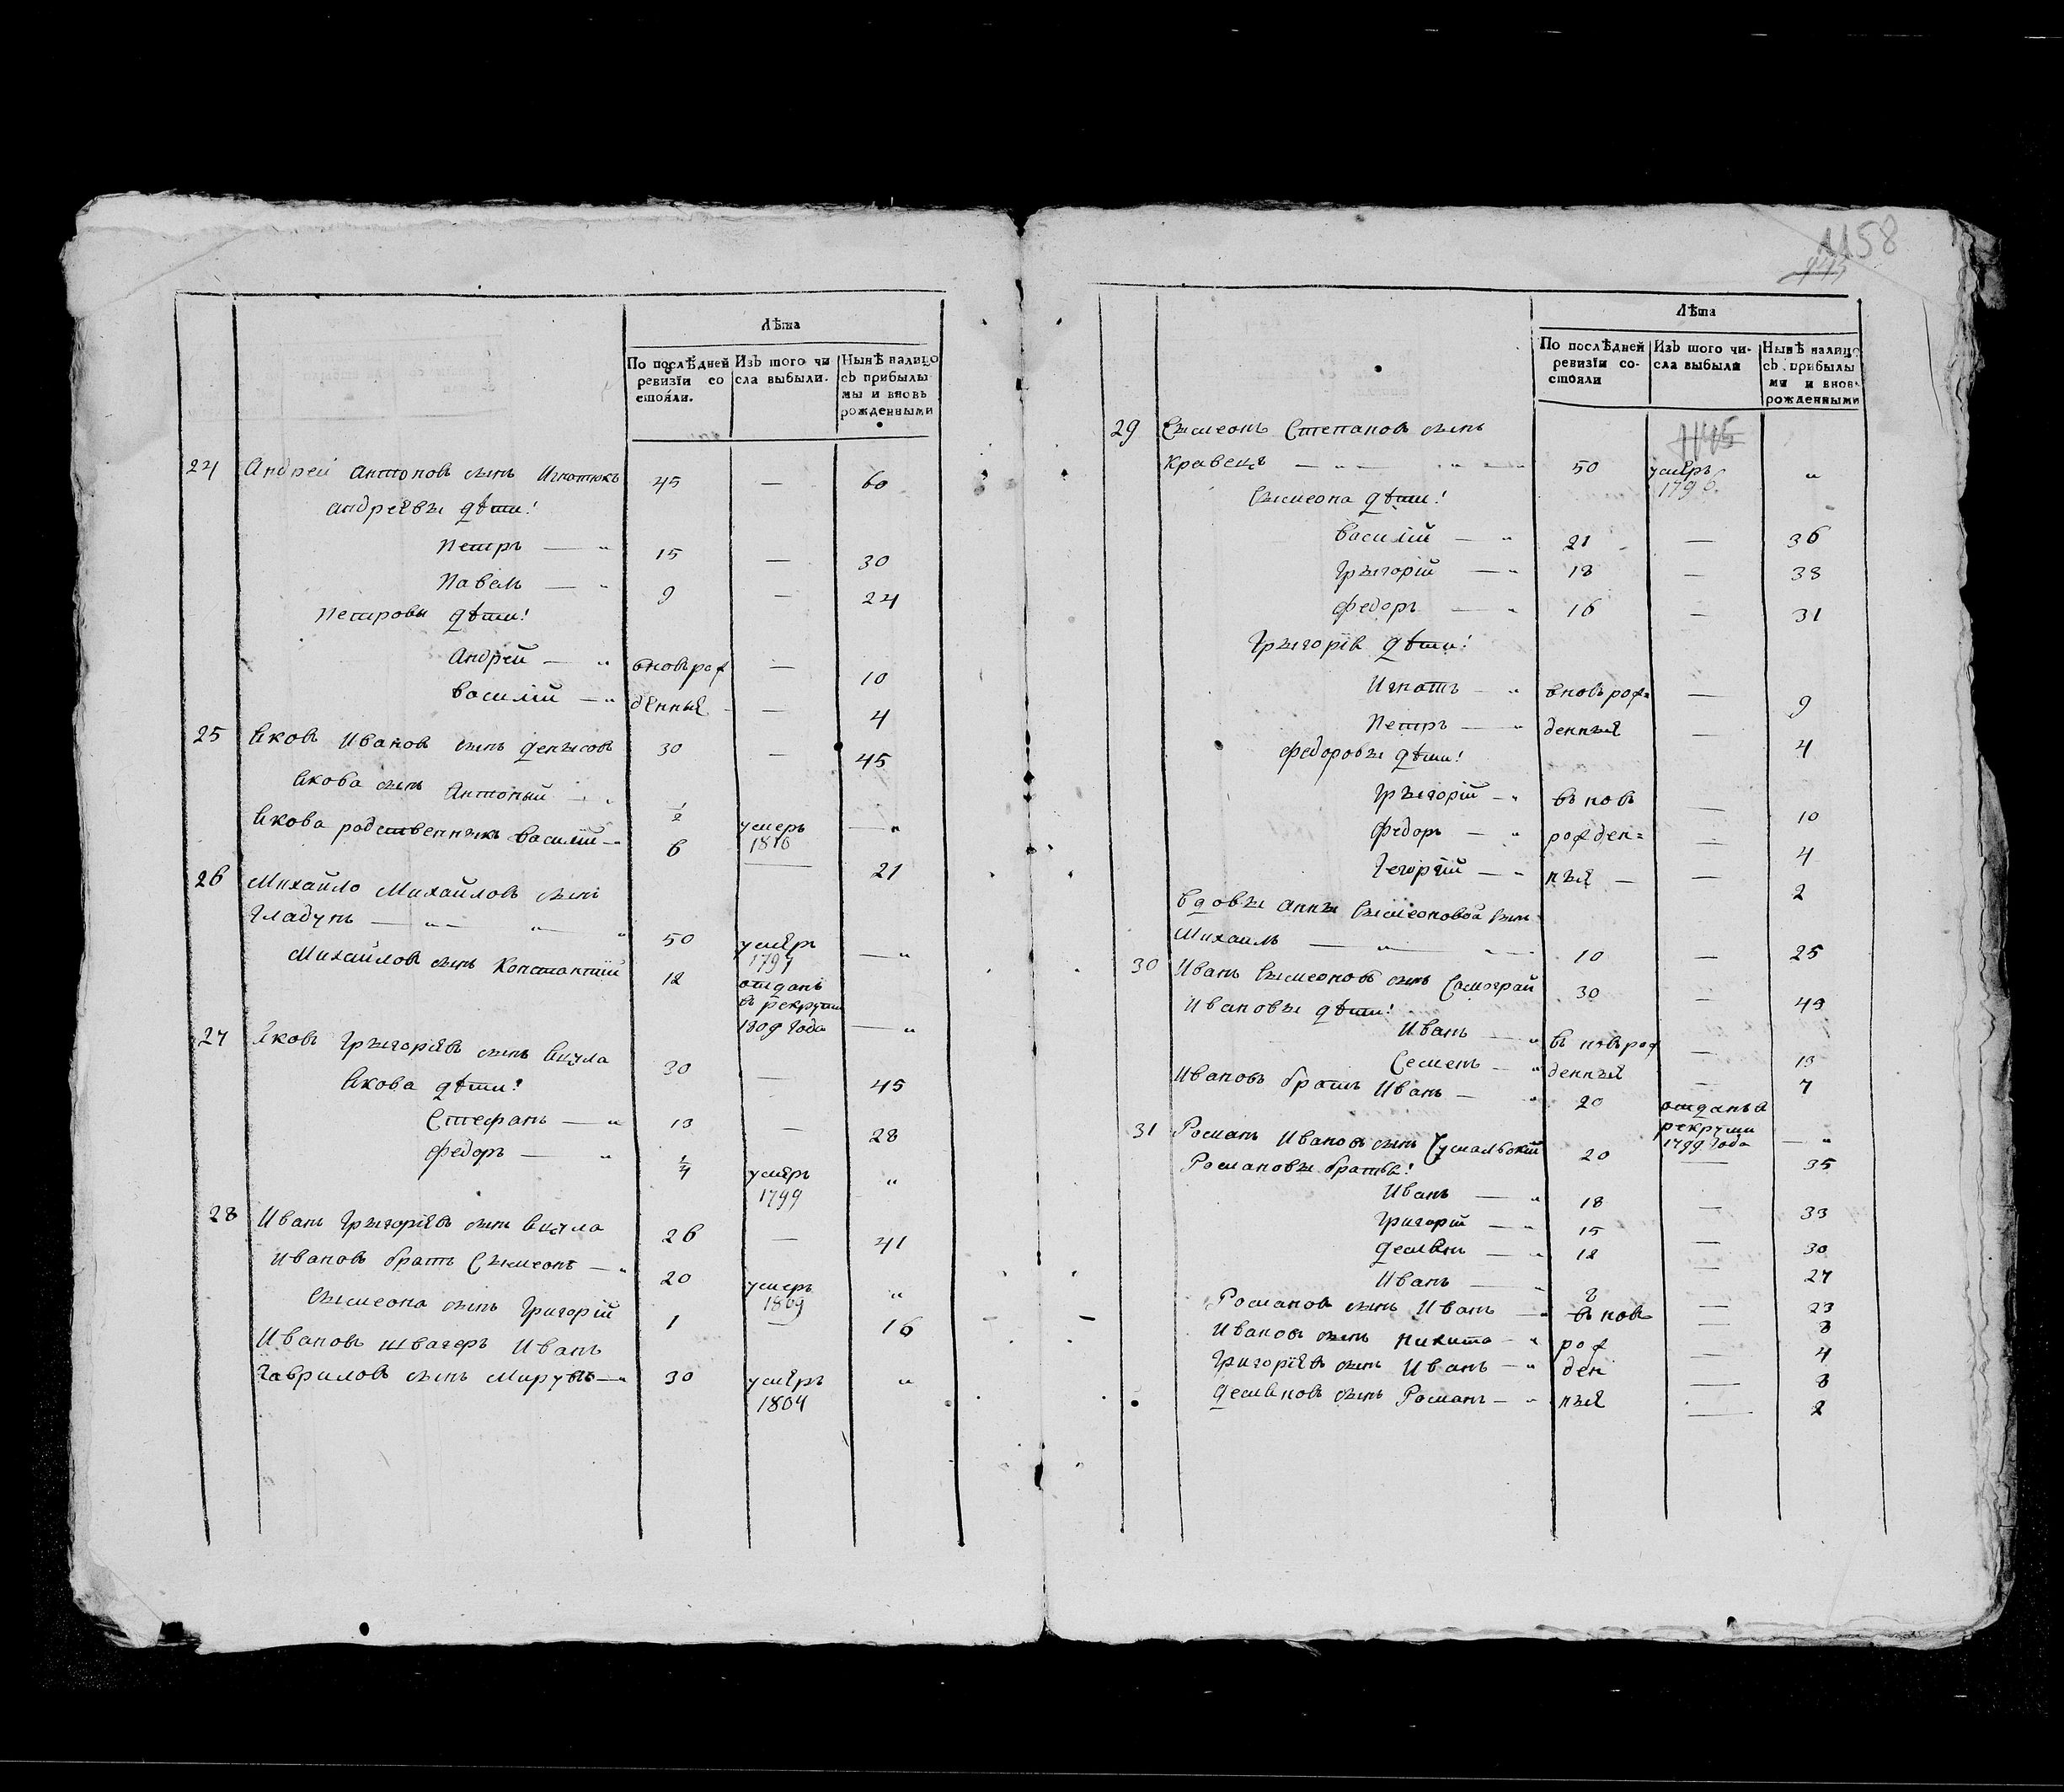 Лѣта
По послѣдней ревизїи со стояли.
Изъ того чи сла выбыли.
Нынѣ налицо съ прибылы мы и вновь рожденными
24 Андрей Антоновъ сынъ Игнатюкъ 45 — 60
Андреевы дѣти:
Петръ — „ 15 — 30
Павелъ — „ 9 — 24
Петровы дѣти:
Андрей — „ вновь рож — 10
Василій — „ денные — 4
25 Яковъ Ивановъ сынъ Денысовъ 30 — 45
Якова сынъ Антоный — „ 1/2 умеръ 1810 — „
Якова родственныкъ Василій — „ 6 — 21
26 Михайло Михайловъ сынъ
Гладунъ — „ — „ 50 умеръ 1797 — „
Михайловъ сынъ Константій 12 отданъ въ рекруты 1809 года — „
27 Яковъ Грыгоріевъ сынъ Вкула 30 — 45
Якова дѣти:
Стефанъ — „ 13 — 28
Федоръ — „ 1/4 умеръ 1799 „
28 Иванъ Грыгоріевъ сынъ Вкула 26 — 41
Ивановъ братъ Сымеонъ — „ 20 умеръ 1809 „
Сымеона сынъ Григорій 1 — 16
Ивановъ швагеръ Иванъ
Гавриловъ сынъ — „ 30 умеръ 1804 „
1158
Лѣта
По послѣдней ревизїи со- стояли
Изъ того чи- сла выбыли
Нынѣ налицо съ прибылы ми и вновь рожденными
29 Сымеонъ Степановъ сынъ
Кравецъ — „ — „ — „ 50 умеръ 1796. „
Сымеона дѣти:
Василій — „ 21 — 36
Грыгорій — „ 18 — 33
Федоръ — „ 16 — 31
Грыгорія дѣти:
Игнатъ — „ вновь рож= — 9
Петръ — „ денные — 4
Федоровы дѣти:
Грыгорій — „ въ новъ — 10
Федоръ — „ рожден= — 4
Георгій — „ ные — — 2
Вдовы Анны Сымеоновой сынъ
Михаилъ — „ — „ 10 — 25
30 Иванъ Сымеоновъ сынъ Самограй 30 — 45
Ивановы дѣти:
Иванъ — „ въ новь рож — 13
Семенъ — „ денные — 7
Ивановъ братъ Иванъ — „ 20 отданъ в рекруты 1799 года — „
31 Романъ Ивановъ сынъ 20 — 35
Романовы братья:
Иванъ — „ 18 — 33
Григорій — „ 15 — 30
Демянъ — „ 12 — 27
Иванъ — „ 8 — 23
Романовъ сынъ Иванъ — „ въ новь — 8
Ивановъ сынъ Никита — „ рож — 4
Григоріевъ сынъ Иванъ — „ ден — 8
Демяновъ сынъ Романъ — „ ные — 2